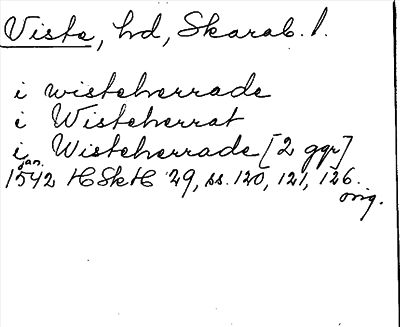 Vista, hd, Skarab. l.
i wisteherrade
i Wisteherrat
i Wisteherrade [2 ggr]
jan.
1542 HSkH 29, ss. 120, 121, 126.
orig.